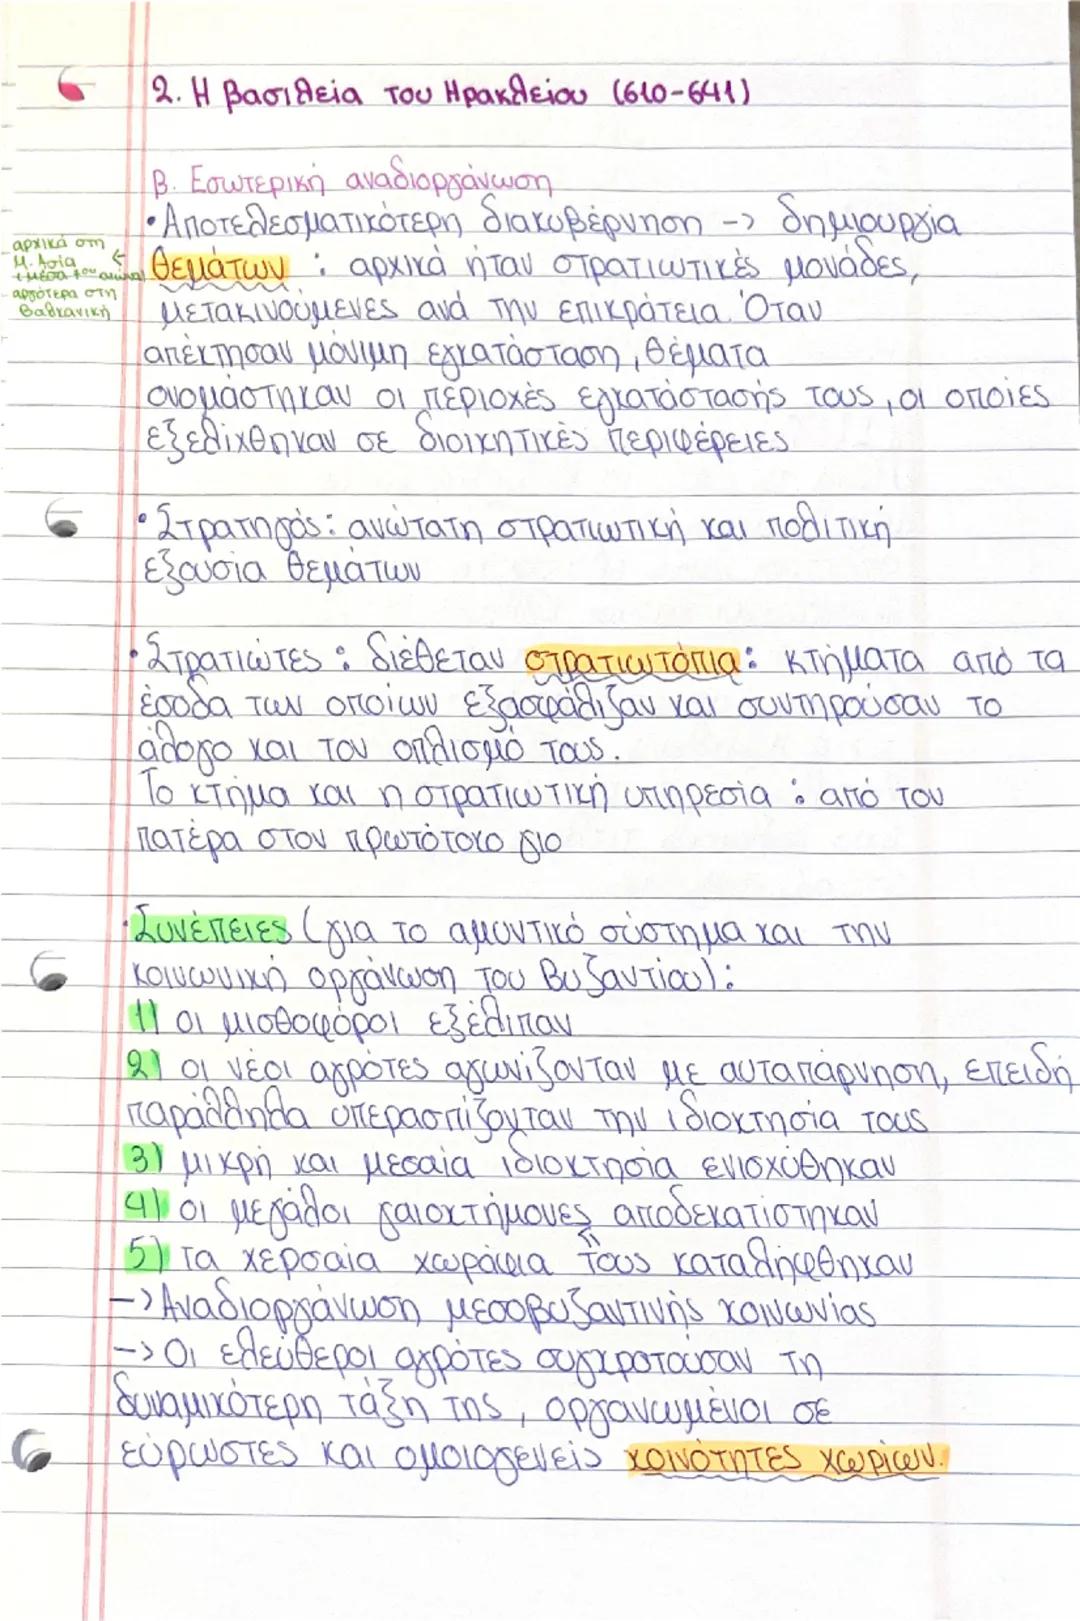 2. Η βασιλεία του Ηρακλείου (610-641)
β. Εσωτερική αναδιοργάνωση
• Αποτελεσματικότερη διακυβέρνηση -> δημιουργία
αρχικά στη
Μ. Ασία
αργότερα στη
Βαλκανική
θεμάτων : αρχικά ήταν στρατιωτικές μονάδες,
μετακινούμενες ανά την επικράτεια. Όταν
απέκτησαν μόνιμη εγκατάσταση, θέματα
ονομάστηκαν οι περιοχές εγκατάστασής τους, οι οποίες
εξελίχθηκαν σε διοικητικές περιφέρειες
• Στρατηγός: ανώτατη στρατιωτική και πολιτική
εξουσία θεμάτων
• Στρατιώτες : διέθεταν στρατιωτόπια: κτήματα από τα
έσοδα των οποίων εξασφάλιζαν και συντηρούσαν το
άλογο και τον οπλισμό τους.
Το κτήμα και η στρατιωτική υπηρεσία : από τον
πατέρα στον πρωτότοκο γιο
• Συνέπειες (για το αμυντικό σύστημα και την
κοινωνική οργάνωση του Βυζαντίου):
1) οι μισθοφόροι εξέλιπαν
2) οι νέοι αγρότες αγωνίζονταν με αυταπάρνηση, επειδή
παράλληλα υπερασπίζονταν την ιδιοκτησία τους
3) μικρή και μεσαία ιδιοκτησία ενισχύθηκαν
4) οι μεγάλοι γαιοκτήμονες αποδεκατίστηκαν
5) τα χερσαία χωράφια τους καταλήφθηκαν
-> Αναδιοργάνωση μεσοβυζαντινής κοινωνίας
-> Οι ελεύθεροι αγρότες συγκροτούσαν τη
δυναμικότερη τάξη της, οργανωμένοι σε
εύρωστες και ομοιογενείς κοινότητες χωρίων.